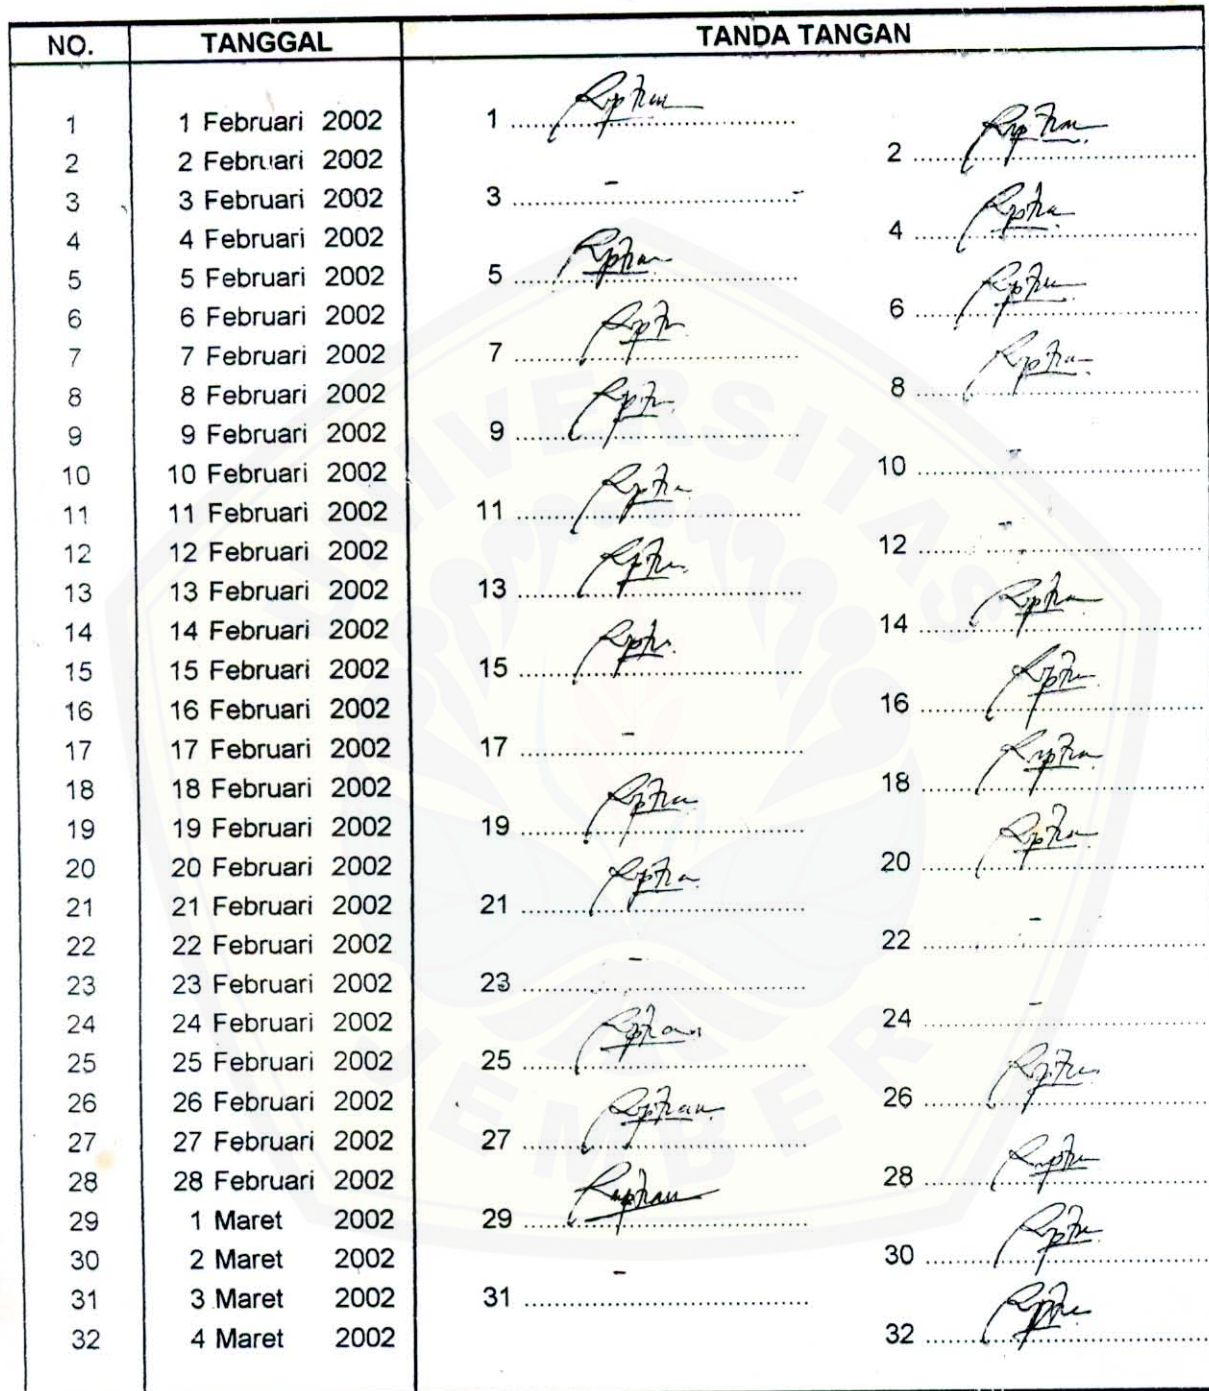 NO. TANGGAL TANDA TANGAN
1 1 Februari 2002 1 ........
2 2 Februari 2002 2 ........
3 3 Februari 2002 3 ........ -
4 4 Februari 2002 4 ........
5 5 Februari 2002 5 ........
6 6 Februari 2002 6 ........
7 7 Februari 2002 7 ........
8 8 Februari 2002 8 ........
9 9 Februari 2002 9 ........
10 10 Februari 2002 10 ........ -
11 11 Februari 2002 11 ........
12 12 Februari 2002 12 ........ -
13 13 Februari 2002 13 ........
14 14 Februari 2002 14 ........
15 15 Februari 2002 15 ........
16 16 Februari 2002 16 ........
17 17 Februari 2002 17 ........ -
18 18 Februari 2002 18 ........
19 19 Februari 2002 19 ........
20 20 Februari 2002 20 ........
21 21 Februari 2002 21 ........
22 22 Februari 2002 22 ........ -
23 23 Februari 2002 23 ........ -
24 24 Februari 2002 24 ........ -
25 25 Februari 2002 25 ........
26 26 Februari 2002 26 ........
27 27 Februari 2002 27 ........
28 28 Februari 2002 28 ........
29 1 Maret 2002 29 ........
30 2 Maret 2002 30 ........
31 3 Maret 2002 31 ........ -
32 4 Maret 2002 32 ........
UNIVERSITAS
JEMBER